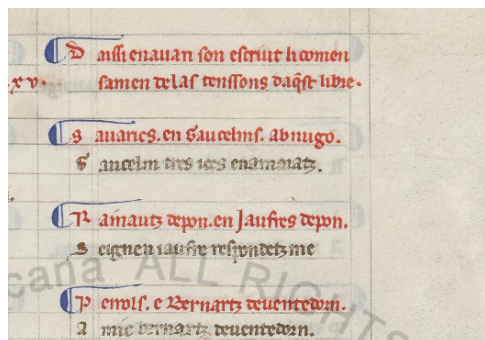 D aissi enauan son escriut li comen
.xv. samen de las tenssons daq̃st libre.
S auaries. en Gaucelms. ab nugo.
G aucelm tres iocs enamoratz.
R ainautz depon. en Jaufres depon.
S eignen iaufre respondetz me
P eirols. e Bernartz deuentedorn.
A mic bernartz deuentedorn.
cana ALL RIGHTS